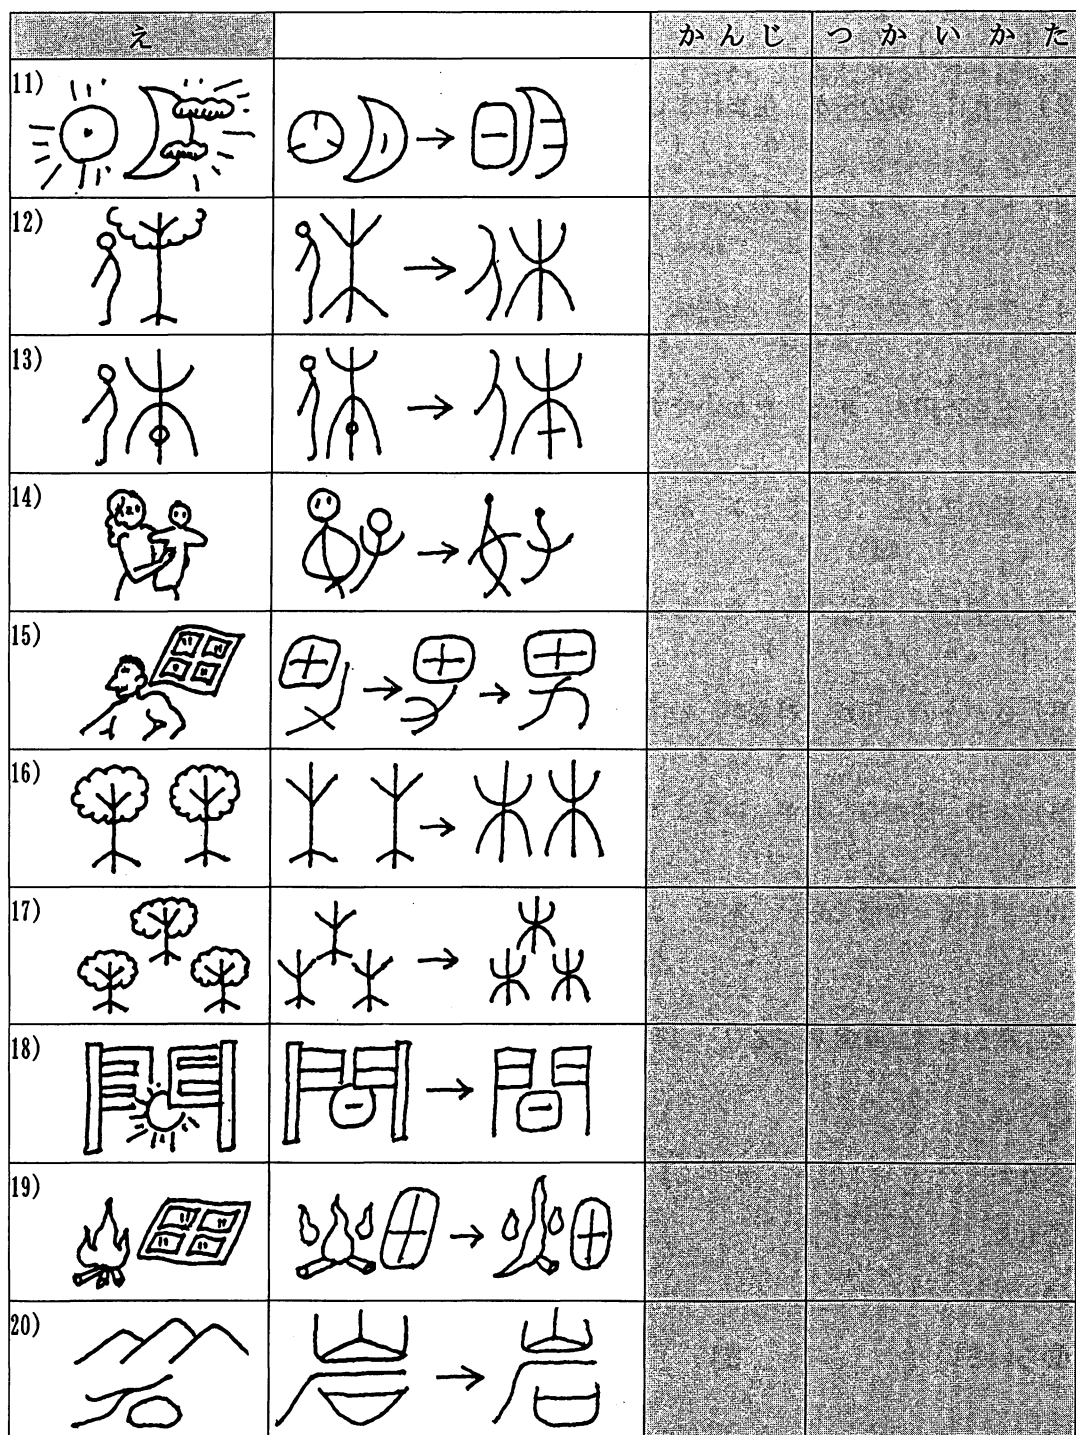 え かんじ つかいかた
11)
12)
13)
14)
15)
16)
17)
18)
19)
20)